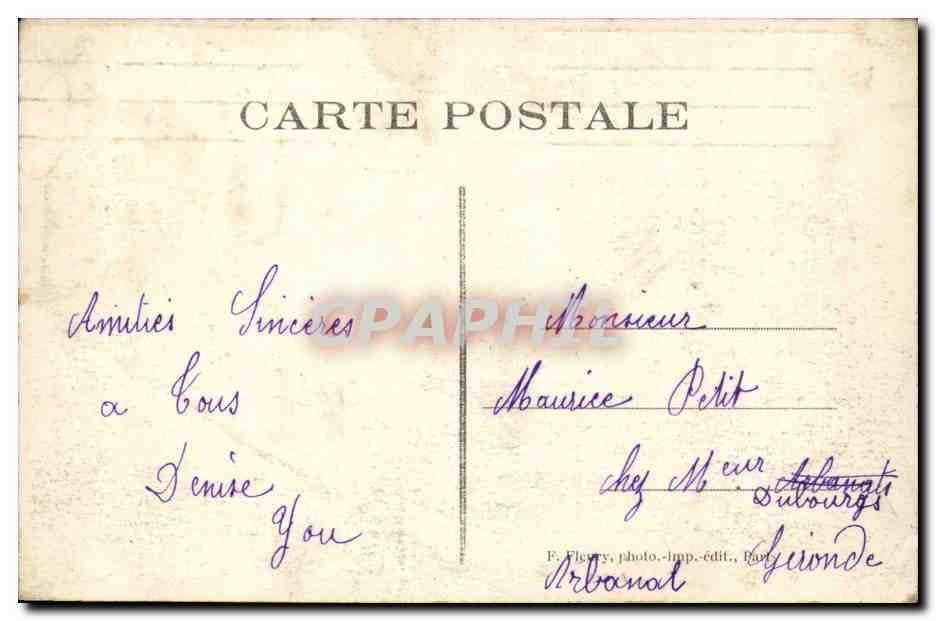 CARTE POSTALE
Amitiés Sincères
a Tous
Denise
You
CPAPHIL
Monsieur
Maurice Petit
chez Meur. Arbanats
Dubourgs
F. Fleury, photo.-imp.-édit., Paris
Gironde
Arbanat